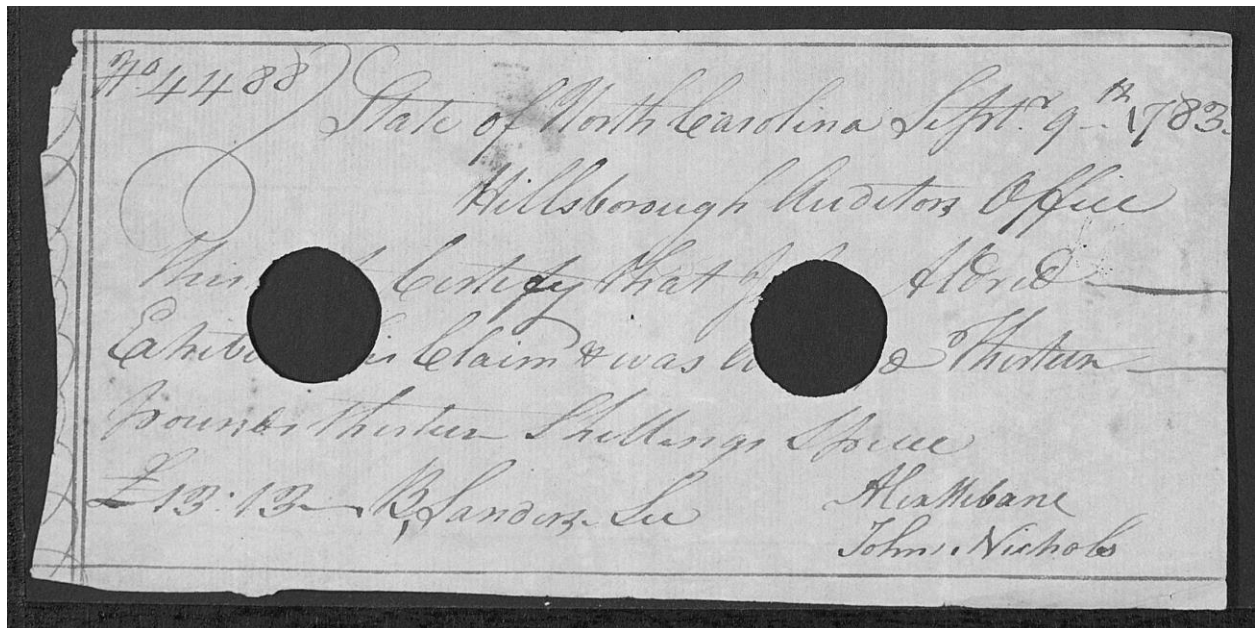 No. 4488
State of North Carolina Septr. 9th 1783
Hillsborough Auditors Office
This Certify that Aldred
Exhibi his Claim & was Thirteen
pounds thirteen Shillings Specie
£13:13 B, Sanders See Alex Mebane
John Nichols